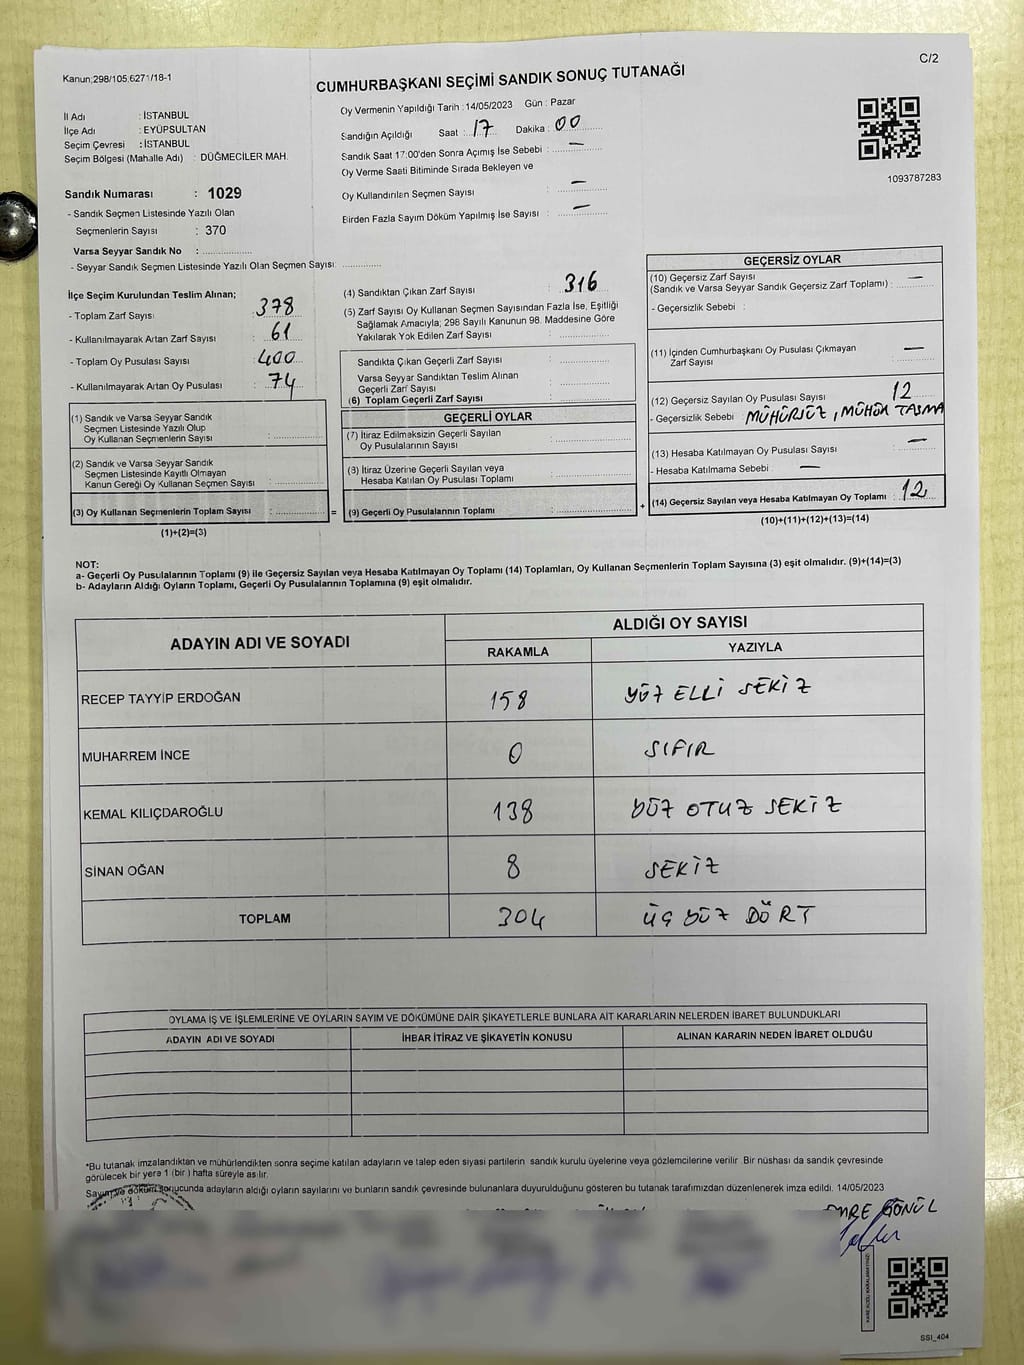 C/2
Kanun;298/105;6271/18-1
CUMHURBAŞKANI SEÇİMİ SANDIK SONUÇ TUTANAĞI
İl Adı : İSTANBUL
İlçe Adı : EYÜPSULTAN
Seçim Çevresi : İSTANBUL
Seçim Bölgesi (Mahalle Adı) : DÜĞMECİLER MAH.
Oy Vermenin Yapıldığı Tarih : 14/05/2023 Gün : Pazar
Sandığın Açıldığı Saat : 17 Dakika : 00
Sandık Saat 17:00'den Sonra Açımış İse Sebebi : —
Oy Verme Saati Bitiminde Sırada Bekleyen ve
Oy Kullandırılan Seçmen Sayısı : —
Birden Fazla Sayım Döküm Yapılmış İse Sayısı : —
1093787283
Sandık Numarası : 1029
- Sandık Seçmen Listesinde Yazılı Olan
Seçmenlerin Sayısı : 370
Varsa Seyyar Sandık No :
- Seyyar Sandık Seçmen Listesinde Yazılı Olan Seçmen Sayısı:
İlçe Seçim Kurulundan Teslim Alınan;
- Toplam Zarf Sayısı : 378
- Kullanılmayarak Artan Zarf Sayısı : 61
- Toplam Oy Pusulası Sayısı : 400
- Kullanılmayarak Artan Oy Pusulası : 74
(1) Sandık ve Varsa Seyyar Sandık
Seçmen Listesinde Yazılı Olup
Oy Kullanan Seçmenlerin Sayısı :
(2) Sandık ve Varsa Seyyar Sandık
Seçmen Listesinde Kayıtlı Olmayan
Kanun Gereği Oy Kullanan Seçmen Sayısı :
(3) Oy Kullanan Seçmenlerin Toplam Sayısı :
(1)+(2)=(3)
(4) Sandıktan Çıkan Zarf Sayısı : 316
(5) Zarf Sayısı Oy Kullanan Seçmen Sayısından Fazla İse, Eşitliği
Sağlamak Amacıyla; 298 Sayılı Kanunun 98. Maddesine Göre
Yakılarak Yok Edilen Zarf Sayısı :
Sandıkta Çıkan Geçerli Zarf Sayısı :
Varsa Seyyar Sandıktan Teslim Alınan
Geçerli Zarf Sayısı :
(6) Toplam Geçerli Zarf Sayısı :
GEÇERLİ OYLAR
(7) İtiraz Edilmeksizin Geçerli Sayılan
Oy Pusulalarının Sayısı :
(8) İtiraz Üzerine Geçerli Sayılan veya
Hesaba Katılan Oy Pusulası Toplamı :
= (9) Geçerli Oy Pusulalarının Toplamı :
GEÇERSİZ OYLAR
(10) Geçersiz Zarf Sayısı —
(Sandık ve Varsa Seyyar Sandık Geçersiz Zarf Toplamı) :
- Geçersizlik Sebebi :
(11) İçinden Cumhurbaşkanı Oy Pusulası Çıkmayan
Zarf Sayısı : —
(12) Geçersiz Sayılan Oy Pusulası Sayısı : 12
- Geçersizlik Sebebi MÜHÜRSÜZ, MÜHÜR TAŞMA
(13) Hesaba Katılmayan Oy Pusulası Sayısı : —
- Hesaba Katılmama Sebebi : —
+ (14) Geçersiz Sayılan veya Hesaba Katılmayan Oy Toplamı : 12
(10)+(11)+(12)+(13)=(14)
NOT:
a- Geçerli Oy Pusulalarının Toplamı (9) ile Geçersiz Sayılan veya Hesaba Katılmayan Oy Toplamı (14) Toplamları, Oy Kullanan Seçmenlerin Toplam Sayısına (3) eşit olmalıdır. (9)+(14)=(3)
b- Adayların Aldığı Oyların Toplamı, Geçerli Oy Pusulalarının Toplamına (9) eşit olmalıdır.
ADAYIN ADI VE SOYADI ALDIĞI OY SAYISI
RAKAMLA YAZIYLA
RECEP TAYYİP ERDOĞAN 158 YÜZ ELLİ SEKİZ
MUHARREM İNCE 0 SIFIR
KEMAL KILIÇDAROĞLU 138 YÜZ OTUZ SEKİZ
SİNAN OĞAN 8 SEKİZ
TOPLAM 304 ÜÇ YÜZ DÖRT
OYLAMA İŞ VE İŞLEMLERİNE VE OYLARIN SAYIM VE DÖKÜMÜNE DAİR ŞİKAYETLERLE BUNLARA AİT KARARLARIN NELERDEN İBARET BULUNDUKLARI
ADAYIN ADI VE SOYADI İHBAR İTİRAZ VE ŞİKAYETİN KONUSU ALINAN KARARIN NEDEN İBARET OLDUĞU
*Bu tutanak imzalandıktan ve mühürlendikten sonra seçime katılan adayların ve talep eden siyasi partilerin sandık kurulu üyelerine veya gözlemcilerine verilir. Bir nüshası da sandık çevresinde
görülecek bir yere 1 (bir) hafta süreyle asılır.
Sayım ve döküm sonucunda adayların aldığı oyların sayılarını ve bunların sandık çevresinde bulunanlara duyurulduğunu gösteren bu tutanak tarafımızdan düzenlenerek imza edildi. 14/05/2023
EMRE GÖNÜL
SSI_404